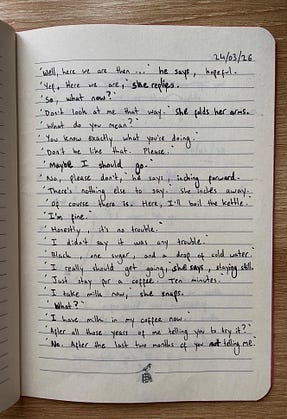 24/03/26
'Well, here we are then ...' he says, hopeful.
'Yep. Here we are,' she replies.
'So, what now?'
'Don't look at me that way.' she folds her arms.
'What do you mean?'
'You know exactly what you're doing.'
'Don't be like that. Please.'
'Maybe I should go.'
'No, please don't,' he says, inching forward.
'There's nothing else to say.' she inches away.
'Of course there is. Here, I'll boil the kettle.'
'I'm fine.'
'Honestly, it's no trouble.'
'I didn't say it was any trouble.'
'Black, one sugar, and a drop of cold water.'
'I really should get going,' she says, staying still.
'Just stay for a coffee. Ten minutes.'
'I take milk now,' she snaps.
'What?'
'I have milk in my coffee now.'
'After all those years of me telling you to try it?'
'No. After the last two months of you not telling me.'